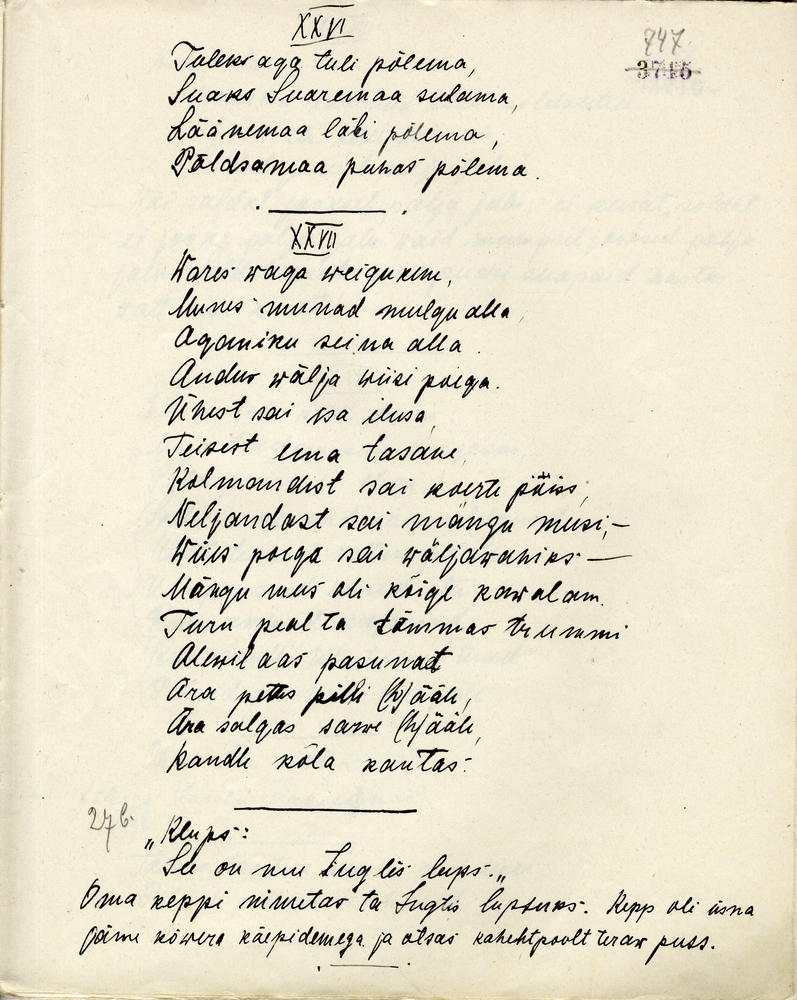 XXVI
947
3715
Tuleks aga tuli põlema,
Suaks Suaremaa sulama,
Läänemaa läbi põlema,
Põldsamaa puhas põlema.
XXVII
Wares waga weigukene,
Munes munad mulgu alla,
Aganiku seina alla.
Andus wälja wiisi poega.
Ühest sai isa ilusa,
Teisest ema tasane,
Kolmandast sai koerte pöiss,
Neljandast sai mängu meesi,—
Wiies poega sai wäljawahiks —
Mängu mees oli kõige kawalam.
Turu pealta tõmmas trummi
Alewil aas pasunat
Ära pettis pilli (h)ääli,
Ära salgas sarwe (h)ääli,
Kandli kõla kautas.
27b.
„Klups:
See on muu Inglis lups.„
Oma keppi nimetas ta Inglis lupsuks. Kepp oli üsna
jäme kõwera käepidemega ja otsas kahehtpoolt teraw puss.